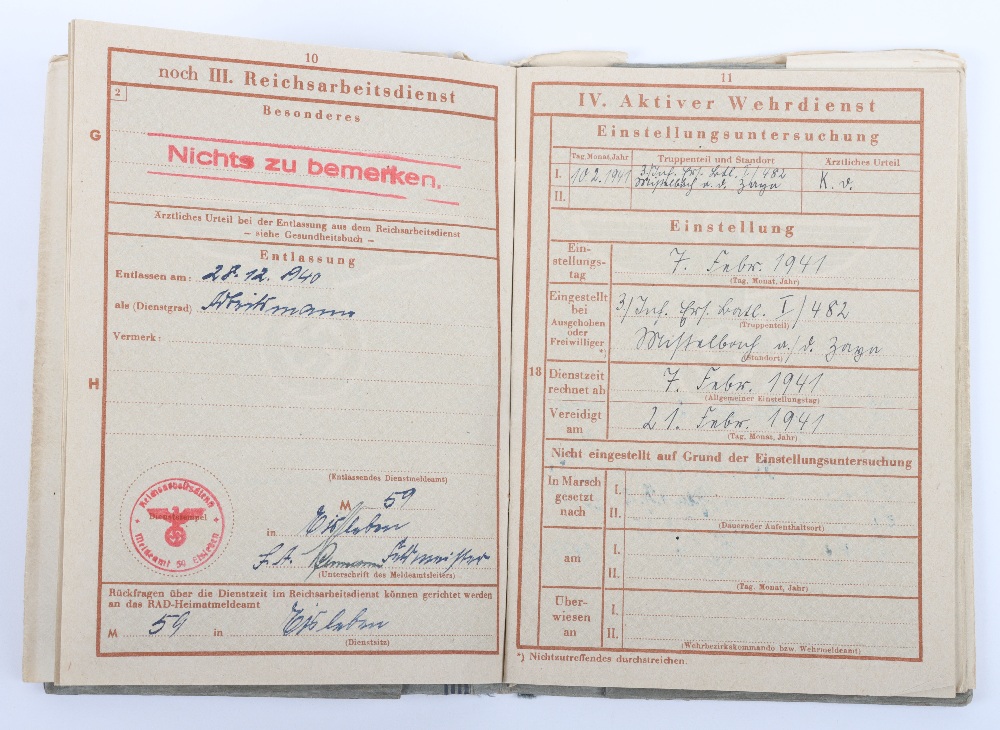 10
noch III. Reichsarbeitsdienst
2
Besonderes
G
Nichts zu bemerken.
Ärztliches Urteil bei der Entlassung aus dem Reichsarbeitsdienst
– siehe Gesundheitsbuch –
Entlassung
Entlassen am: 28. 12. 1940
als (Dienstgrad) Arbeitsmann
Vermerk:
H
(Entlassendes Dienstmeldeamt)
M 59
in Eisleben
Reichsarbeitsdienst
Dienststempel
Meldeamt 59 Eisleben
Feldmeister
(Unterschrift des Meldeamtsleiters)
Rückfragen über die Dienstzeit im Reichsarbeitsdienst können gerichtet werden
an das RAD-Heimatmeldeamt
M 59 in Eisleben
(Dienstsitz)
11
IV. Aktiver Wehrdienst
Einstellungsuntersuchung
Tag, Monat, Jahr Truppenteil und Standort Ärztliches Urteil
I. 10.2.1941 3/Inf. Ers. Batl. I/482 K. v.
Mistelbach a. d. Zaya
II.
Einstellung
Ein-
stellungs-
tag
7. Febr. 1941
(Tag, Monat, Jahr)
Eingestellt
bei
Ausgehoben
oder
Freiwilliger
*)
3/Inf. Ers. Batl. I/482
(Truppenteil)
Mistelbach a/d. Zaya
(Standort)
18
Dienstzeit
rechnet ab
7. Febr. 1941
(Allgemeiner Einstellungstag)
Vereidigt
am
21. Febr. 1941
(Tag, Monat, Jahr)
Nicht eingestellt auf Grund der Einstellungsuntersuchung
In Marsch
gesetzt
nach
I.
II.
(Dauernder Aufenthaltsort)
am
I.
II.
(Tag, Monat, Jahr)
Über-
wiesen
an
I.
II.
(Wehrbezirkskommando bzw. Wehrmeldeamt)
*) Nichtzutreffendes durchstreichen.